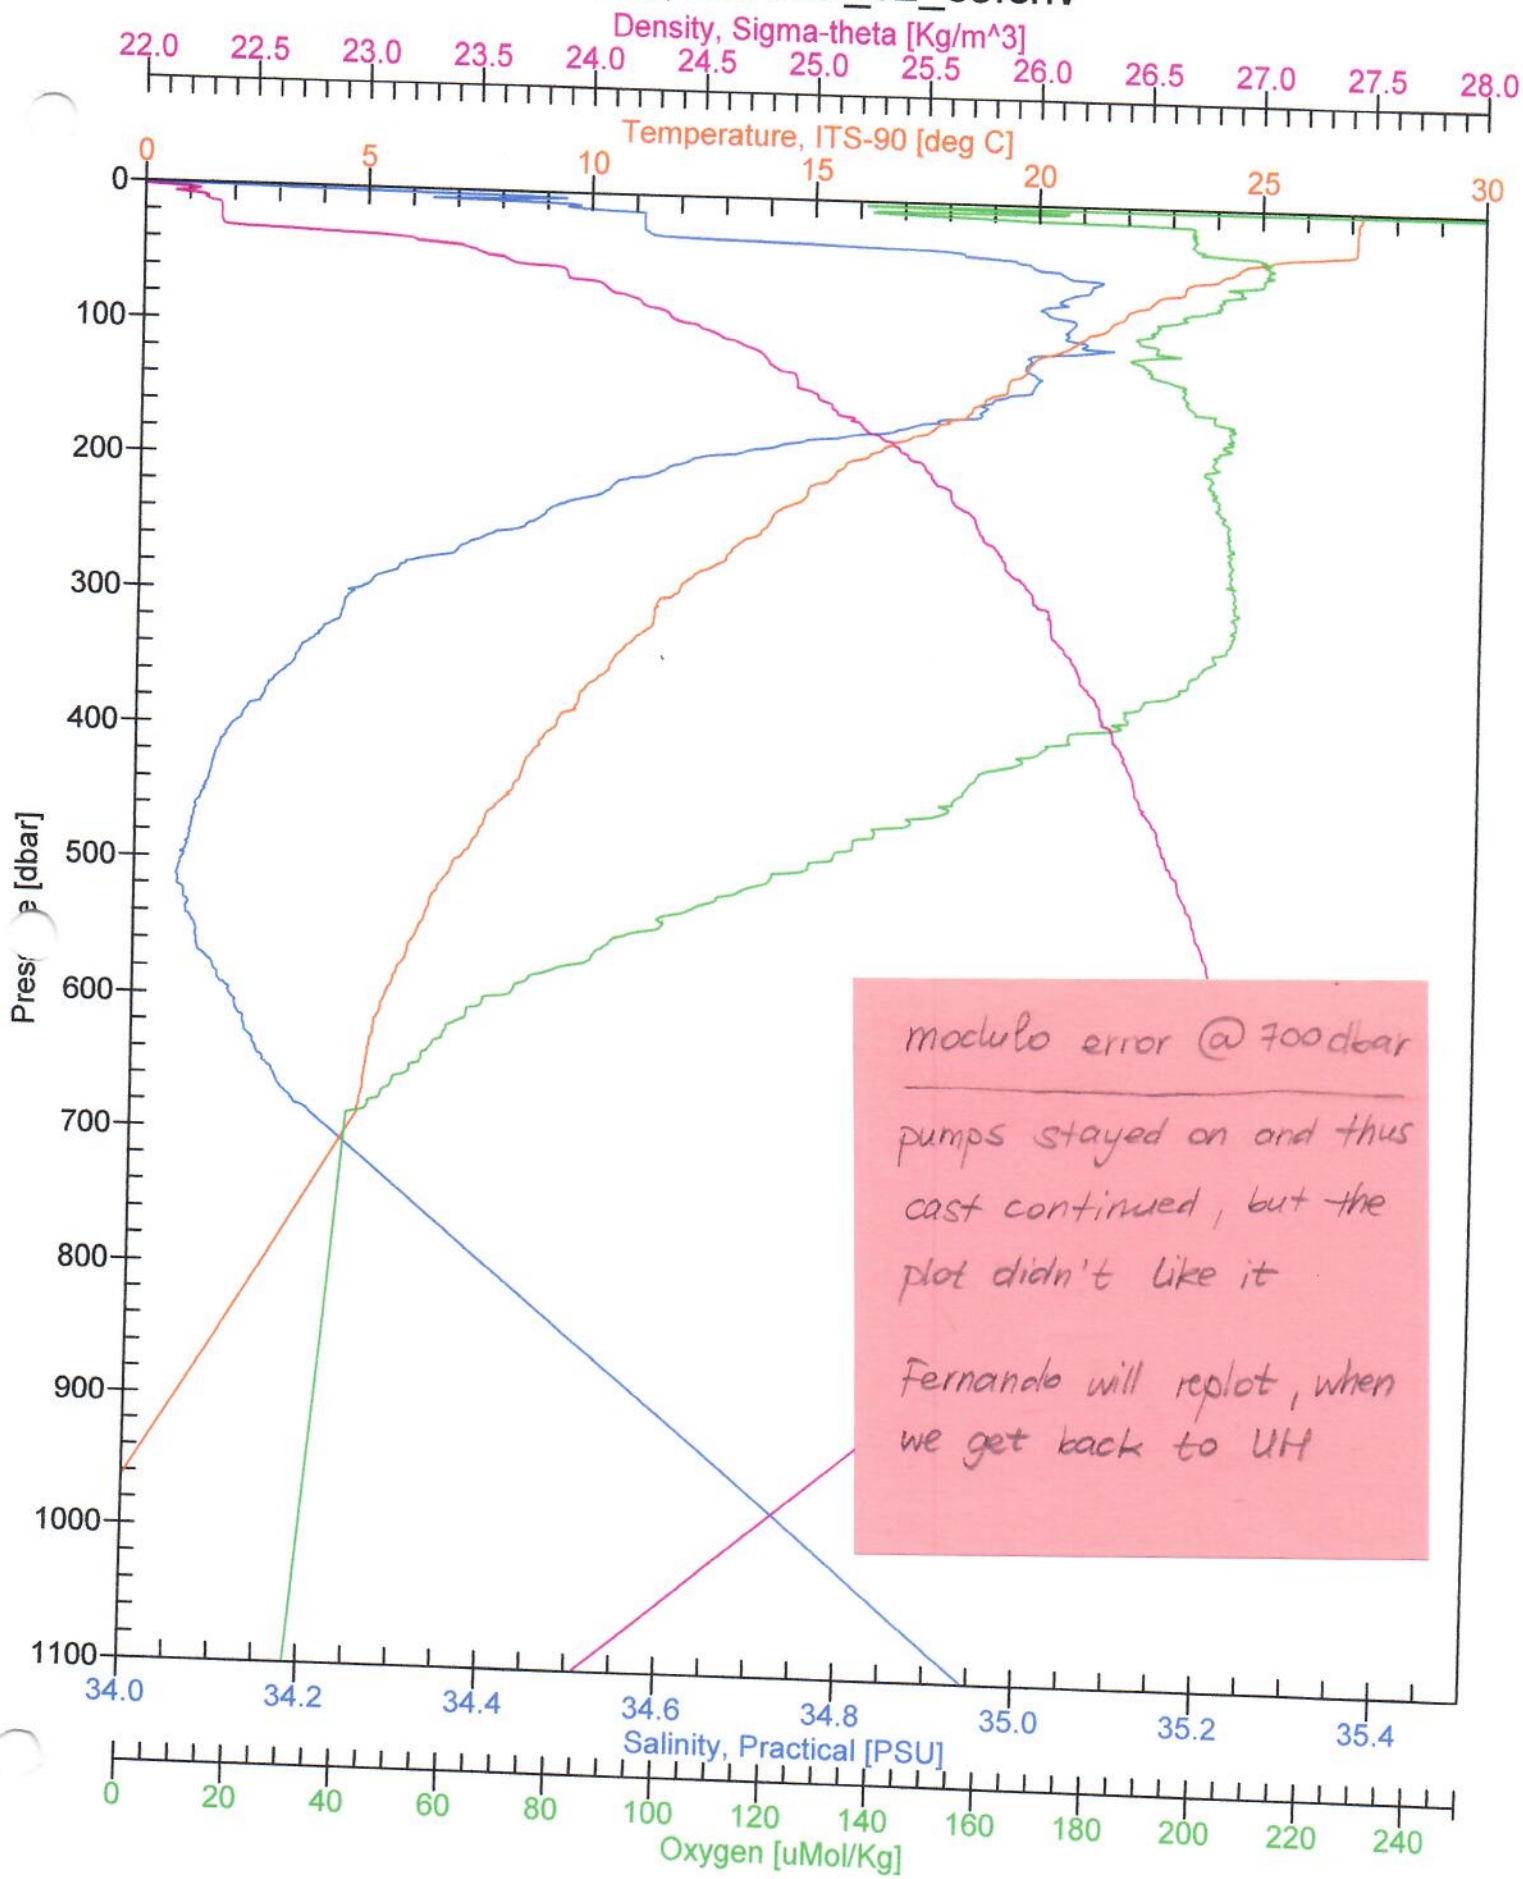 Density, Sigma-theta [Kg/m^3]
22.0 22.5 23.0 23.5 24.0 24.5 25.0 25.5 26.0 26.5 27.0 27.5 28.0
Temperature, ITS-90 [deg C]
0 5 10 15 20 25 30
0
100
200
300
400
500
600
700
800
900
1000
1100
Pres e [dbar]
modulo error @ 700dbar
pumps stayed on and thus
cast continued, but the
plot didn't like it
Fernando will replot, when
we get back to UH
34.0 34.2 34.4 34.6 34.8 35.0 35.2 35.4
Salinity, Practical [PSU]
0 20 40 60 80 100 120 140 160 180 200 220 240
Oxygen [uMol/Kg]